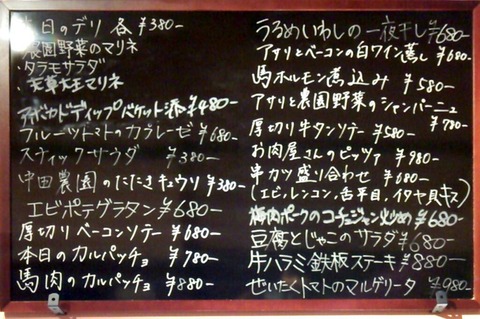 本日のデリ 各 ¥380-
・農園野菜のマリネ
・タラモサラダ
・天草大王マリネ
アボカドディップバケット添 ¥480-
フルーツトマトのカプレーゼ ¥680-
スティックサラダ ¥380-
中田農園のたたきキュウリ ¥380-
エビポテグラタン ¥680-
厚切りベーコンソテー ¥680-
本日のカルパッチョ ¥780-
馬肉のカルパッチョ ¥880-
うるめいわしの一夜干し ¥680-
アサリとベーコンの白ワイン蒸し ¥680-
馬ホルモン煮込み ¥580-
アサリと農園野菜のシャンパーニュ ¥780-
厚切り牛タンソテー ¥580-
お肉屋さんのピッツァ ¥980-
串カツ盛り合わせ ¥680-
(エビ,レンコン,舌平目,イタヤ貝,キス)
梅肉ポークのコチュジャン炒め ¥680-
豆腐とじゃこのサラダ ¥680-
牛ハラミ鉄板ステーキ ¥880-
ぜいたくトマトのマルゲリータ ¥980-